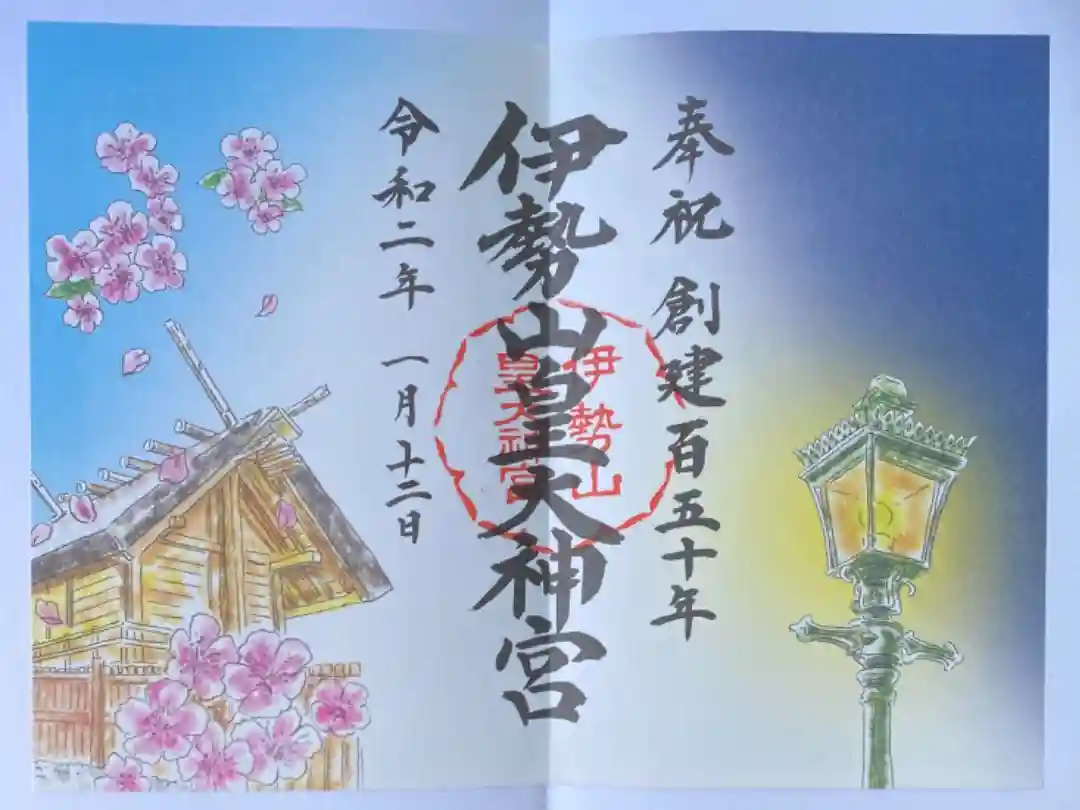 奉祝 創建百五十年
伊勢山皇大神宮
伊勢山
皇大神宮
令和二年 一月十二日